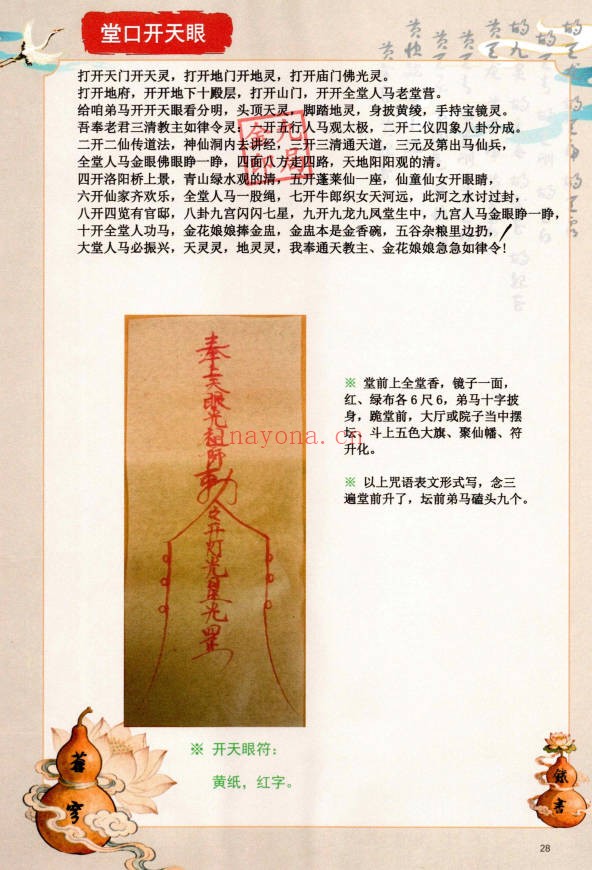 堂口开天眼
打开天门开天灵，打开地门开地灵，打开庙门佛光灵。
打开地府，开开地下十殿层，打开山门，开开全堂人马老堂营。
给咱弟马开开天眼看分明，头顶天灵，脚踏地灵，身披黄绫，手持宝镜灵。
吾奉老君三清教主如律令灵，一开五行人马观太极，二开二仪四象八卦分成。
二开二仙传道法，神仙洞内去讲经，三开三清通天道，三元及第出马仙兵，
全堂人马金眼佛眼睁一睁，四面八方走四路，天地阳阳观的清。
四开洛阳桥上景，青山绿水观的清，五开蓬莱仙一座，仙童仙女开眼睛，
六开仙家齐欢乐，全堂人马一股绳，七开牛郎织女天河远，此河之水讨过封，
八开四览有官邸，八卦九宫闪闪七星，九开九龙九凤堂生中，九宫人马金眼睁一睁，
十开全堂人功马，金花娘娘捧金盅，金盅本是金香碗，五谷杂粮里边扔，
大堂人马必振兴，天灵灵，地灵灵，我奉通天教主、金花娘娘急急如律令！
奉上天眼光祖师勅令之开灯光星光罡
nayona.cn
※ 堂前上全堂香，镜子一面，
红、绿布各6尺6，弟马十字披
身，跪堂前，大厅或院子当中摆
坛，斗上五色大旗、聚仙幡、符
升化。
※ 以上咒语表文形式写，念三
遍堂前升了，坛前弟马磕头九个。
※ 开天眼符：
黄纸，红字。
苍穹
铁书
28